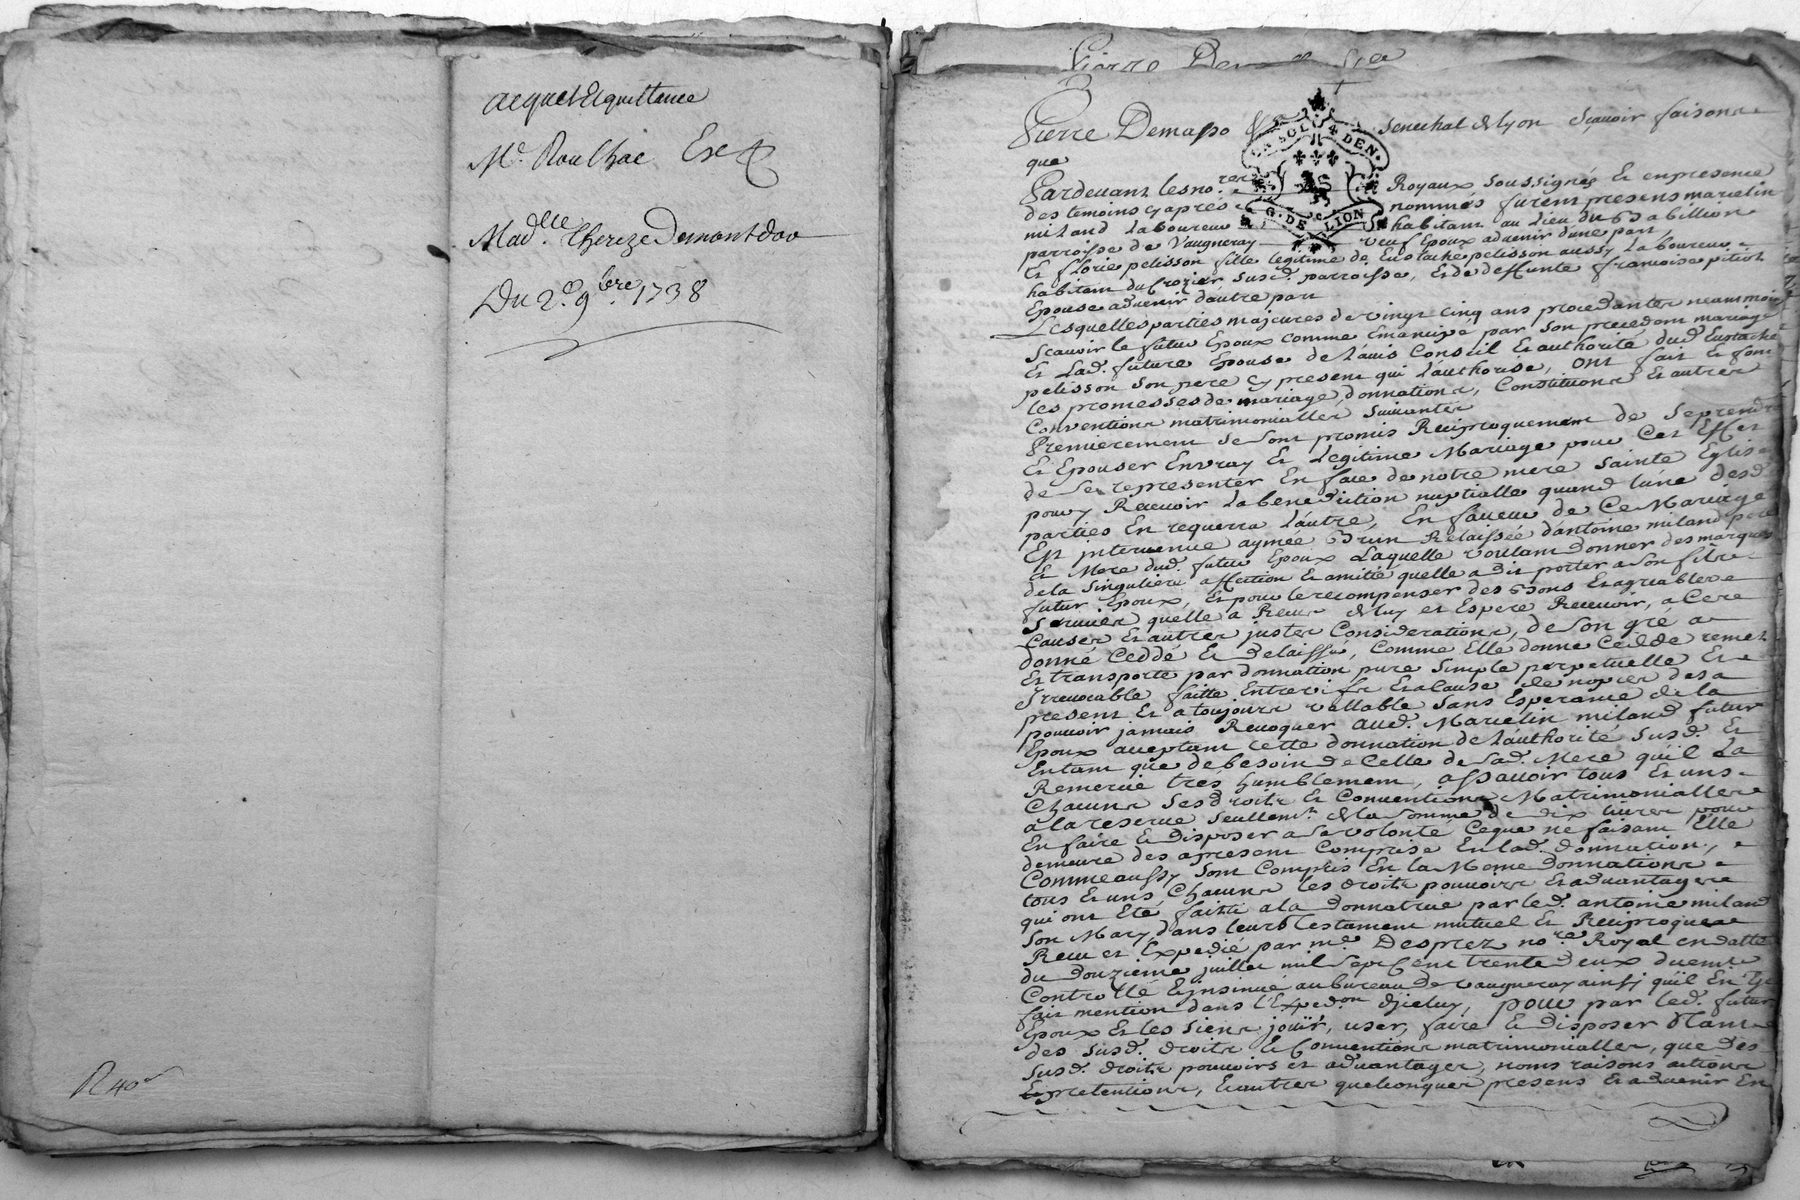 acquet Et quittance
Mr. Roulhac Ere
Mad.lle Thereze Demontdor
Du 2e. 9bre. 1738
R 40
Pierre
Pierre Demasso Senechal de Lyon Sçavoir faisons
que
UN SOL 4 DEN.
G. DE LION
Pardevant les no.res Royaux soussignés et en presence
des temoins cy aprés nommés furent presens marcelin
miland Laboureur habitant au Lieu du Babillion
parroisse de Vaugneray veuf Epoux advenir dune part,
Et florie pelisson fille legitime de Eustache pelisson aussy Laboureur
habitant du Crozier susd. parroisse, Et de deffunte francoise pitiot
Epouse advenir dautre part
Lesquelles parties majeures de vingt cinq ans procedantes neammoins
Scavoir le futur Epoux comme Emancipé par son precedent mariage
Et Lad. future Epouse de L'avis Conseil Et authorité dud. Eustache
pelisson son pere cy present qui L'authorise, ont fait Et font
les promesses de mariage, donnations, Constitutions Et autres
Conventions matrimonialles suivantes
Premierement se sont promis Reciproquement de se prendre
Et Epouser En vray Et Legitime Mariage pour Cet Effet
de se representer En face de notre mere sainte Eglise
pour y Recevoir La benediction nuptialle quand l'une desd.
parties En requerra L'autre, En faveur de Ce Mariage
Est intervenue aymée Brun Relaissée d'antoine miland pere
Et Mere dud. futur Epoux Laquelle voulant donner des marques
de la singuliere affection Et amitié quelle a dit porter a son fils
futur Epoux, Et pour le recompenser des Bons Et agreables
Services quelle a Receu de luy et Espere Recevoir, a Ces
Causes Et autres justes Considerations, de son gré a
donné Ceddé Et delaissé, Comme Elle donne Cedde remet
Et transporte par donnation pure simple perpetuelle Et
Irrevocable faitte Entrevifs Et a cause de nopces des a
present Et a toujours vallable sans Esperance de la
pouvoir jamais Revoquer aud. Marcelin miland futur
Epoux acceptant cette donnation de L'authorité susd. Et
Entant que de besoin de Celle de sad. Mere qu'il La
Remercie trés humblement, assavoir tous Et uns
Chacuns ses droits Et Conventions Matrimonialles
a la reserve seullem.t de la somme de dix livres pour
En faire Et disposer a sa volonté Ceque ne faisant Elle
demeure des apresent Comprise En lad. donnation,
Comme aussy sont Compris En la Meme donnation
tous Et uns Chacuns les droits pouvoirs Et advantages
qui ont Eté faits a la donnatrice par led. antoine miland
son Mary dans leurs Testament mutuel Et Reciproque
Receu et Expedié par me. Desprez no.re Royal en datte
du douzieme juillet mil sept Cent trente deux duement
Controllé Et insinué au bureau de vaugneray ainsy qu'il En Est
fait mention dans l'Exped.on d'iceluy, pour par led. futur
Epoux Et les siens joüir, user, faire Et disposer Tant
des susd. droits Et Conventions matrimonialles, que des
susd. droits pouvoirs et advantages, noms raisons actions
Et pretentions, Et autres quelconques presens Et advenir En